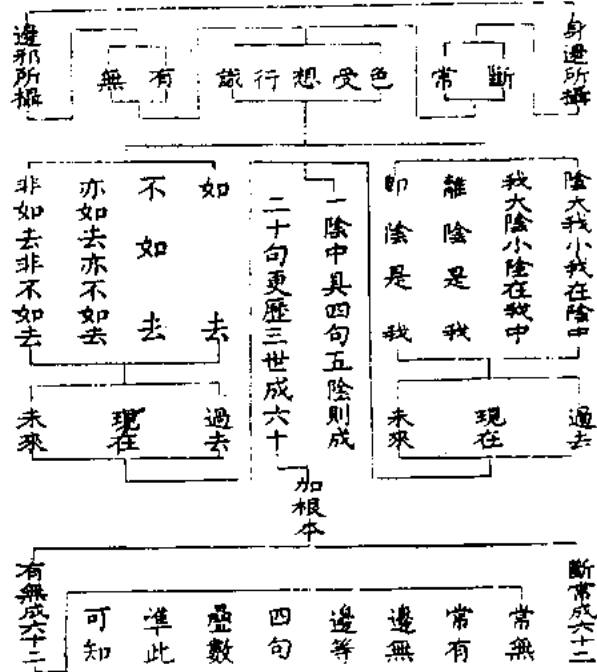 身邊所攝
斷
常
色受想行識
有
無
邊邪所攝
陰大我小我在陰中
我大陰小陰在我中
離陰是我
即陰是我
過去
現在
未來
一陰中具四句五陰則成
二十句更歷三世成六十
如去
不如去
亦如去亦不如去
非如去非不如去
過去
現在
未來
加根本
斷常成六十二
常無
常有
邊無
邊等
四句
疊數
準此
可知
有無成六十二